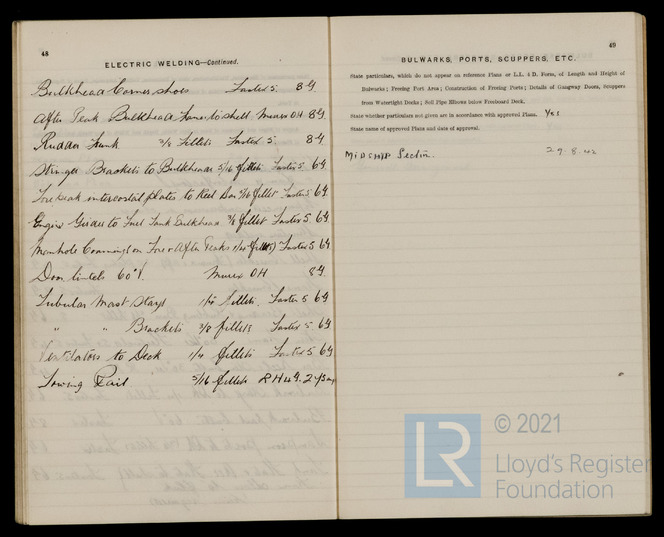 48
ELECTRIC WELDING—Continued.
Bulkhead Corner shoes Fastex 5. 8G
After Peak Bulkhead to shell Murex OH 8G
Rudder Trunk 3/8 Fillets Fastex 5 8G
Stringer Brackets to Bulkheads 5/16 fillets Fastex 5 6G
Forepeak intercostal plates to Keel Bar 5/16 fillet Fastex 5 6G
Engine Girder to Fuel Tank Bulkhead 3/8 fillet Fastex 5 6G
Manhole Coaming on Fore & After Peaks 1/4 fillet Fastex 5 6G
Door lintels 60° V. Murex OH 8G
Tubular Mast Stays 1/4 Fillets. Fastex 5 6G
" " Brackets 3/8 fillets Fastex 5 6G
Ventilators to Deck 1/4 fillets Fastex 5 6G
Towing Rail 5/16 fillets 4G. 2
49
BULWARKS, PORTS, SCUPPERS, ETC.
State particulars, which do not appear on reference Plans or L.L. 4 D. Form, of Length and Height of
Bulwarks; Freeing Port Area; Construction of Freeing Ports; Details of Gangway Doors, Scuppers
from Watertight Decks; Soil Pipe Elbows below Freeboard Deck.
State whether particulars not given are in accordance with approved Plans. Yes
State name of approved Plans and date of approval.
Midship Section. 29.8.42
© 2021
LR
Lloyd's Register
Foundation